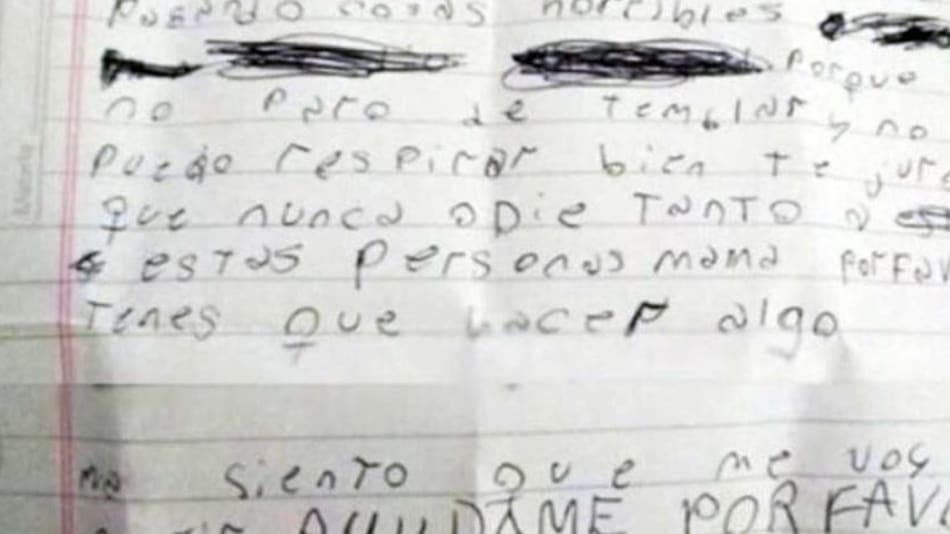 cosas horribles
porque
no paro de temblar y no
puedo respirar bien te jur
que nunca odie tanto a
estas personas mama porfav
tenes que hacer algo
siento que me voy
AYUDAME POR FAV